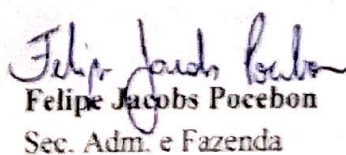 Felipe Jacobs Pocebon
Felipe Jacobs Pocebon
Sec. Adm. e Fazenda